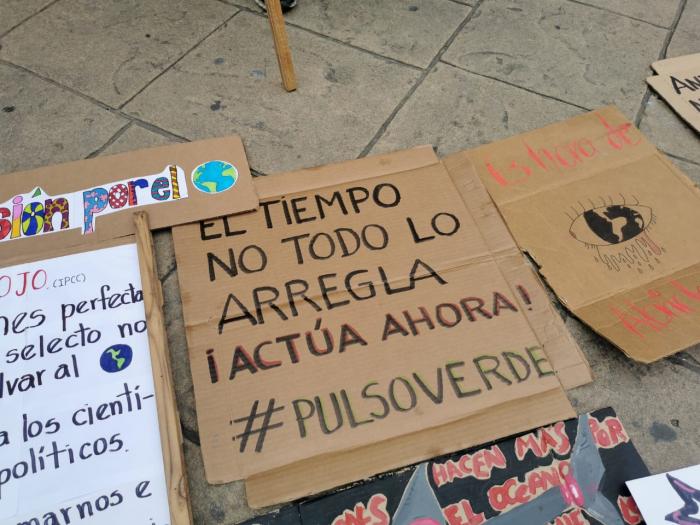 sión por el
OJO. (IPCC)
nes perfecta
selecto no
lvar al
a los cientí-
políticos.
marnos e
EL TIEMPO
NO TODO LO
ARREGLA
¡ACTÚA AHORA!
#PULSOVERDE
Es hora de
HACEN MÁS POR
EL OCEANO